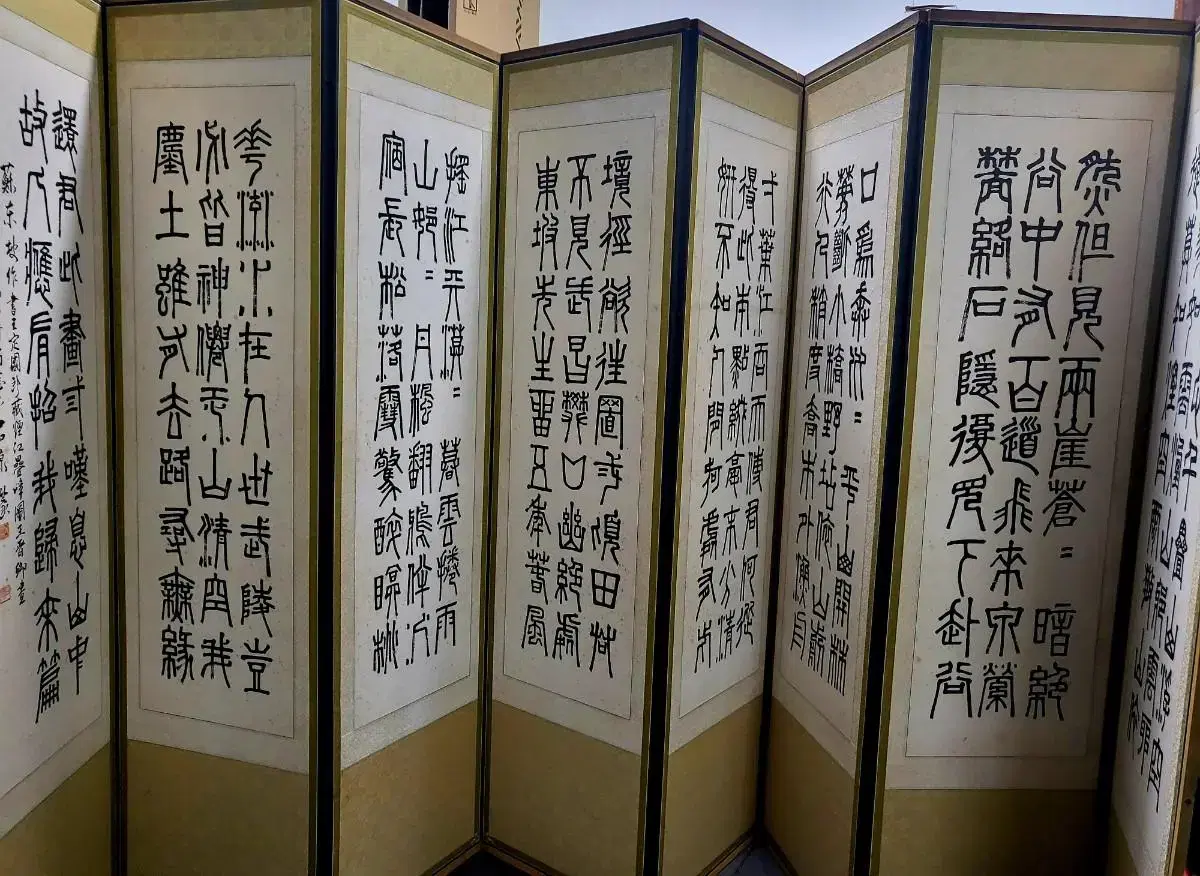 然但見兩崖蒼〻暗絕
谷中有百道飛來泉縈
林絡石隱復見下赴谷
口為奔川〻平山開林
麓斷小橋野店依山前
行人稍度喬木外漁舟
一葉江吞天使君何從
得此本點綴毫末分清
妍不知人間何處有此
境徑欲往置二頃田君
不見武昌樊口幽絕處
東坡先生留五年春風
搖江天漠〻暮雲捲雨
山娟〻丹楓翻鴉伴水
宿長松落雪驚醉眠桃
花流水在人世武陵豈
必皆神僊江山清空我
塵土雖有去路尋無緣
還君此畫三嘆息山中
故人應有招我歸來篇
蘇東坡作書王定國所藏煙江疊嶂圖王晉卿畫